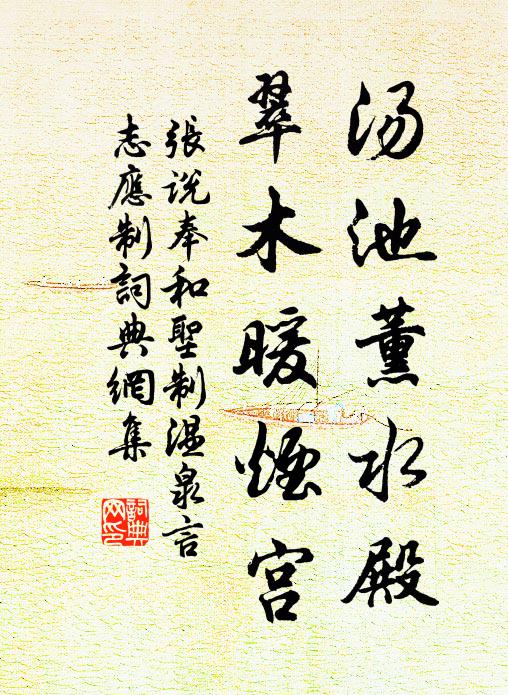 汤池薰水殿
翠木暖烟宫
張說奉和聖制温泉言
志應制詞典網集
詞典
网印